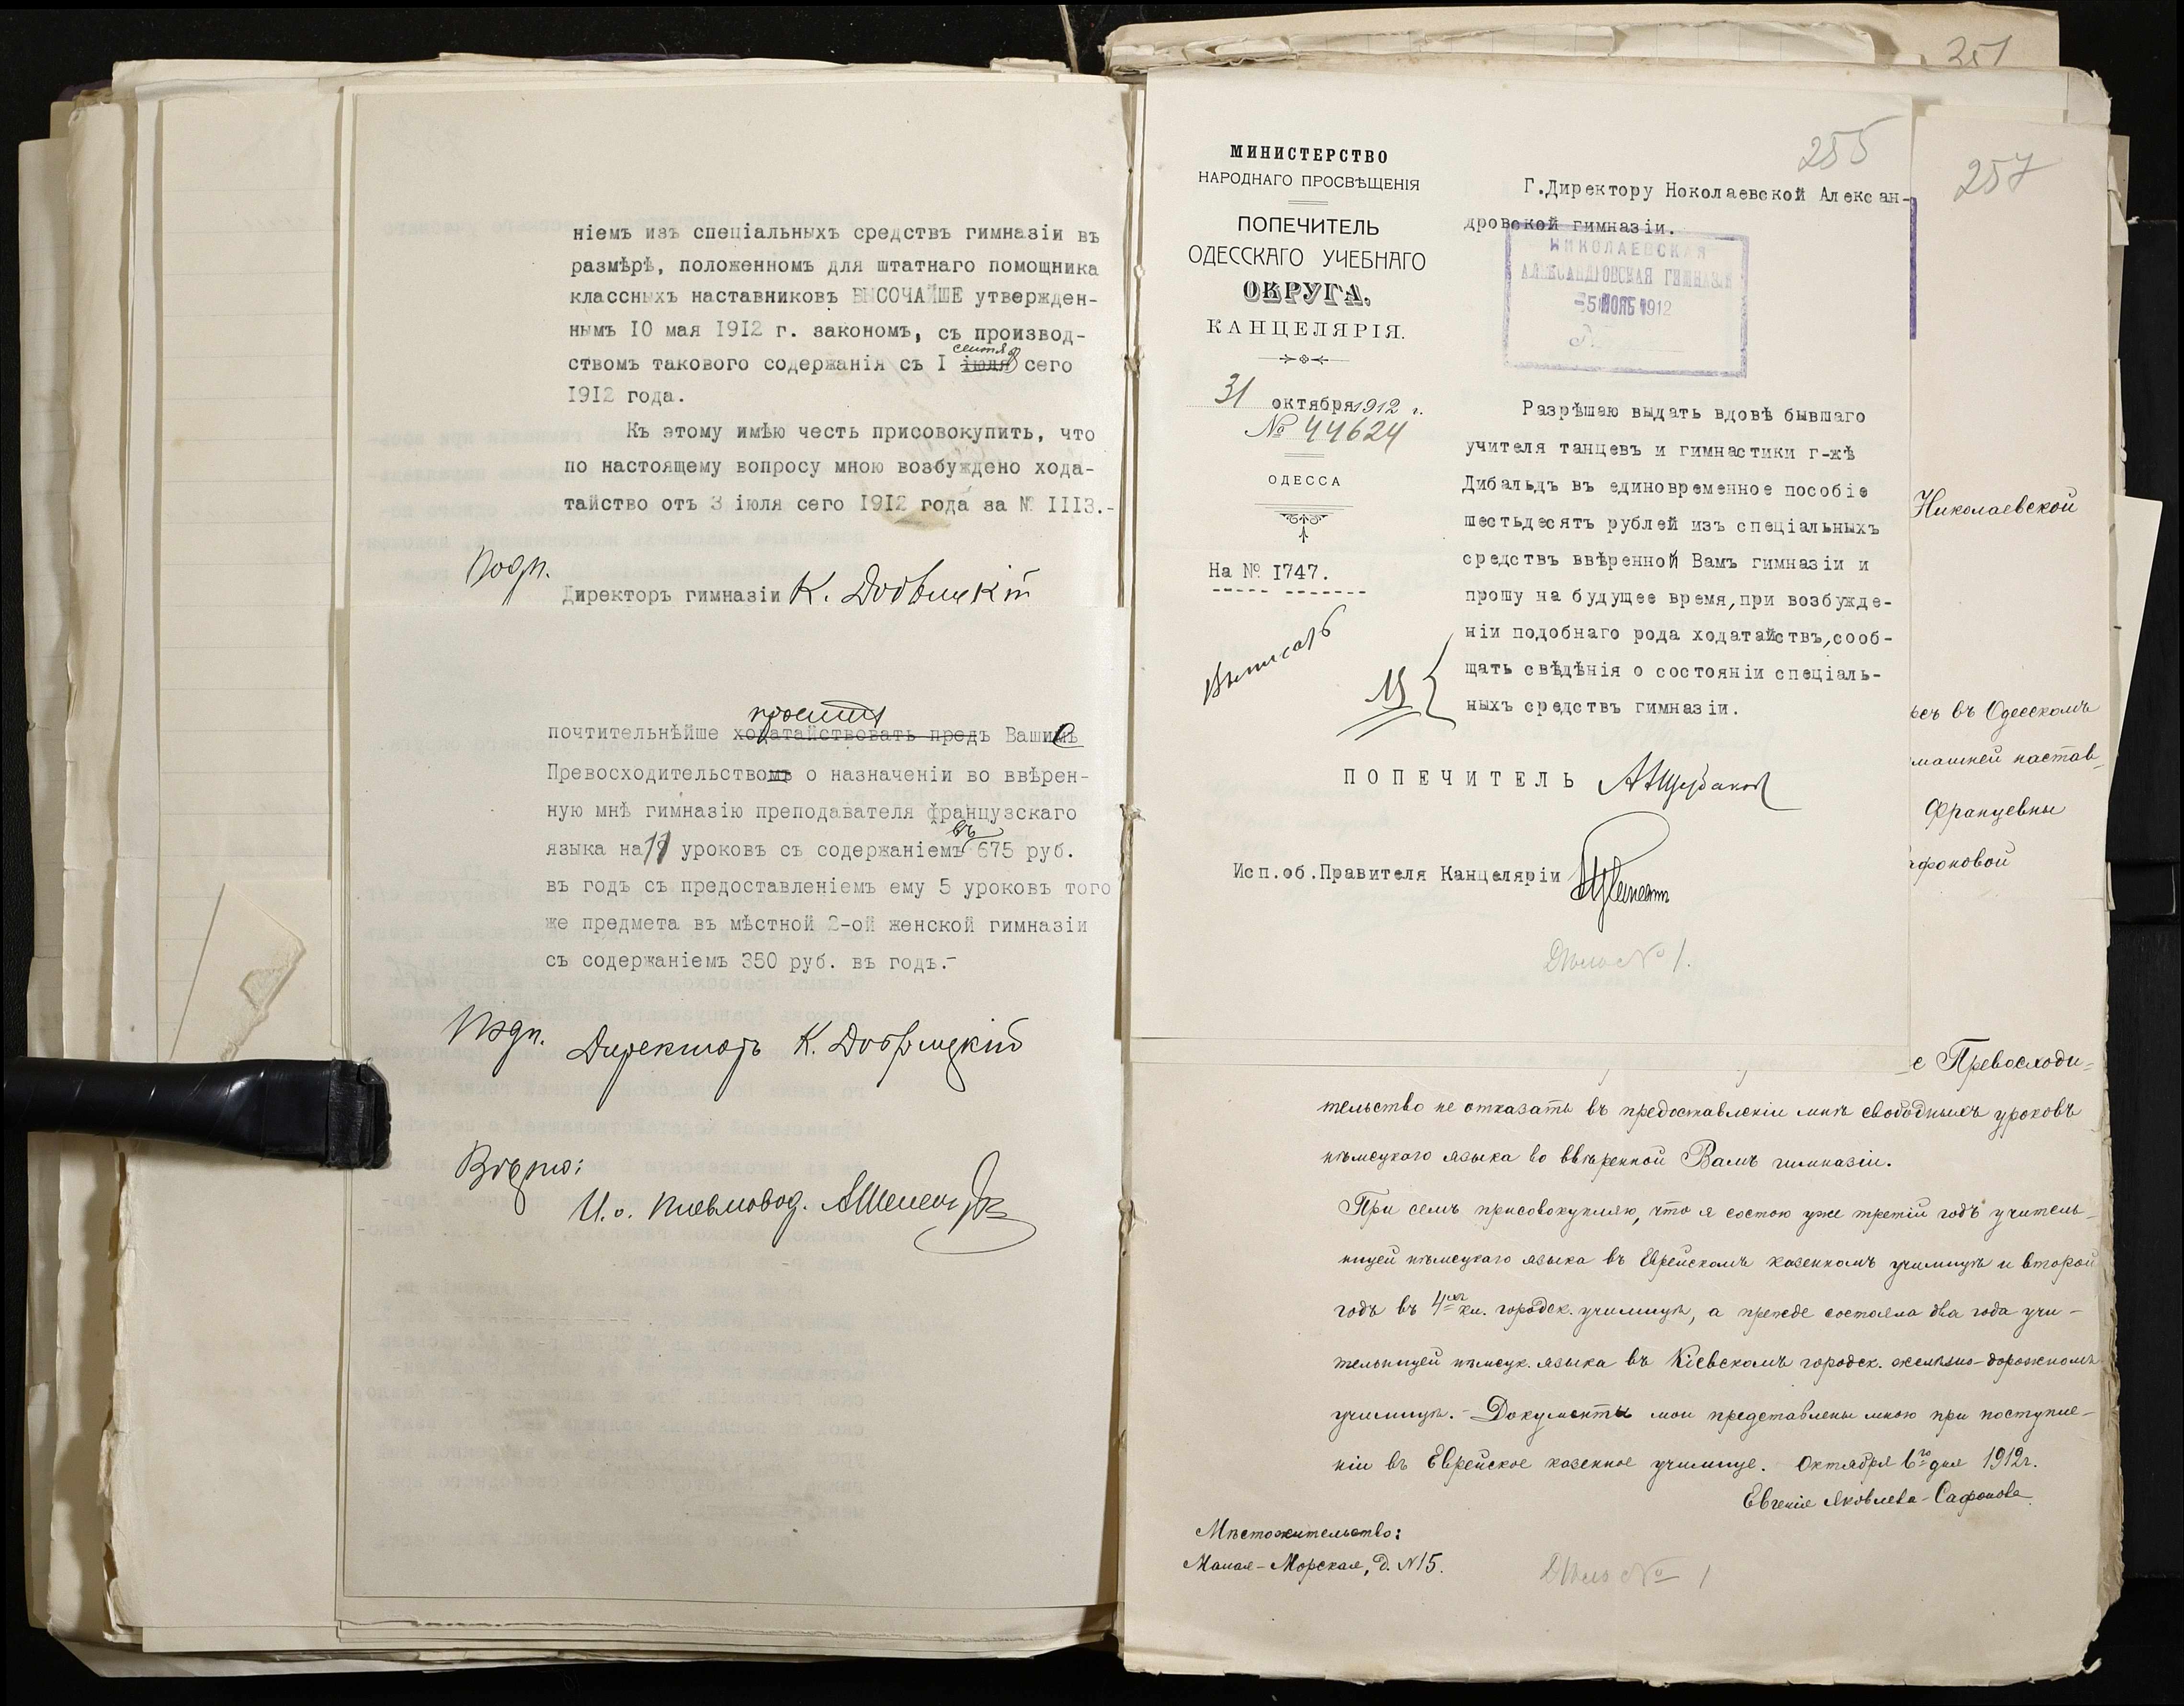 ніемъ изъ спеціальныхъ средствъ гимназіи въ
размѣрѣ, положенномъ для штатнаго помощника
классныхъ наставниковъ ВЫСОЧАЙШЕ утвержден-
нымъ 10 мая 1912 г. закономъ, съ производ-
ствомъ такового содержанія съ I іюля сего
1912 года.
Къ этому имѣю честь присовокупить, что
по настоящему вопросу мною возбуждено хода-
тайство отъ 3 іюля сего 1912 года за № 1113.-
Подп.
Директоръ гимназіи К.
просить
почтительнѣйше ходатайствовать предъ Вашимъ
Превосходительствомъ о назначеніи во ввѣрен-
ную мнѣ гимназію преподавателя французскаго
въ
языка на 11 уроковъ съ содержаніемъ 675 руб.
въ годъ съ предоставленіемъ ему 5 уроковъ того
же предмета въ мѣстной 2-ой женской гимназіи
съ содержаніемъ 350 руб. въ годъ.-
Подп. Директоръ К.
Вѣрно:
И. о. письмовод.
251
255
МИНИСТЕРСТВО
НАРОДНАГО ПРОСВѢЩЕНІЯ
ПОПЕЧИТЕЛЬ
ОДЕССКАГО УЧЕБНАГО
ОКРУГА.
КАНЦЕЛЯРІЯ.
31 октября 1912 г.
№ 44624
ОДЕССА
На № 1747.
Выписать
Г.Директору Николаевской Алексан-
дровской гимназіи.
НИКОЛАЕВСКАЯ
АЛЕКСАНДРОВСКАЯ ГИМНАЗІЯ
-5 НОЯБ 1912
Разрѣшаю выдать вдовѣ бывшаго
учителя танцевъ и гимнастики г-жѣ
Дибальдъ въ единовременное пособіе
шестьдесятъ рублей изъ спеціальныхъ
средствъ ввѣренной Вамъ гимназіи и
прошу на будущее время,при возбужде-
ніи подобнаго рода ходатайствъ,сооб-
щать свѣдѣнія о состояніи спеціаль-
ныхъ средствъ гимназіи.
ПОПЕЧИТЕЛЬ
Исп.об.Правителя Канцеляріи
Дѣло № 1.
257
Николаевской
въ Одесскомъ
машней настав-
Францевны
афоновой
е Превосходи-
тельство не отказать въ предоставленіи мнѣ свободныхъ уроковъ
нѣмецкаго языка во ввѣренной Вамъ гимназіи.
При семъ присовокупляю, что я состою уже третій годъ учитель-
ницей нѣмецкаго языка въ Еврейскомъ казенномъ училищѣ и второй
годъ въ 4хъ кл. городск. училищѣ, а прежде состояла два года учи-
тельницей нѣмецк. языка въ Кіевскомъ городск. желѣзно-дорожномъ
училищѣ. - Документы мои представлены мною при поступле-
ніи въ Еврейское казенное училище. Октября 6го дня 1912г.
Евгенія Яковлева-Сафонова.
Мѣстожительство:
Малая-Морская, д. №15.
Дѣло № 1